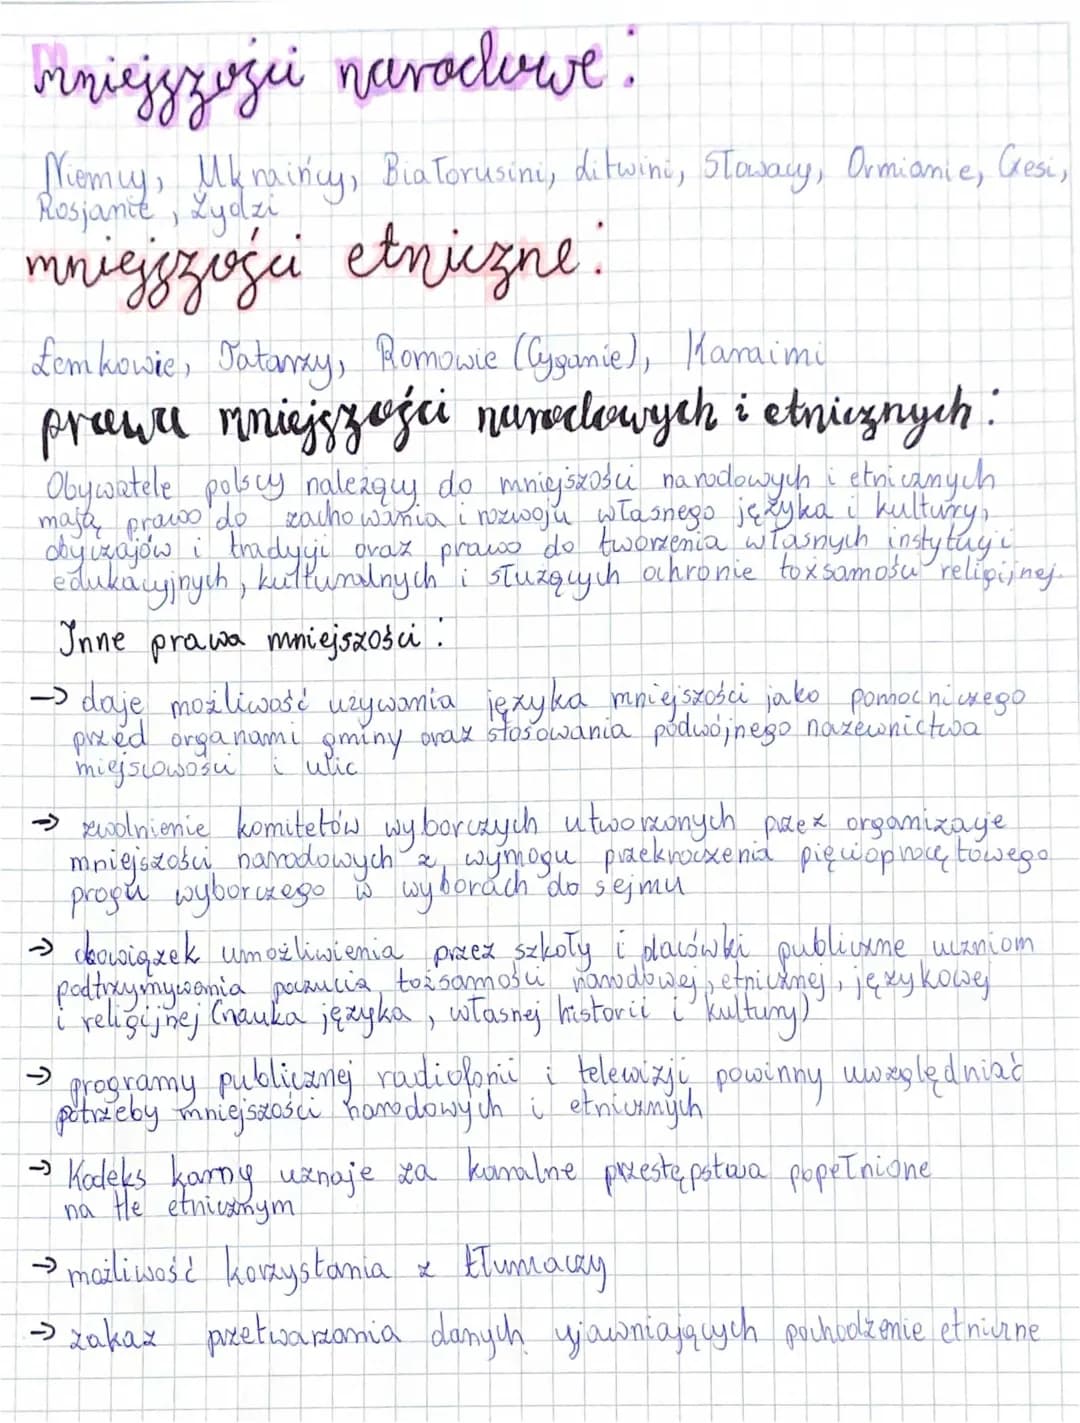 mniejszości narodowe:
Niemcy, Ukraińcy, Białorusini, Litwini, Słowacy, Ormianie, Czesi,
Rosjanie, Żydzi
mniejszości etniczne:
Łemkowie, Tatarzy, Romowie (Cyganie), Karaimi
prawa mniejszości narodowych i etnicznych:
Obywatele polscy należący do mniejszości narodowych i etnicznych
mają prawo do zachowania i rozwoju własnego języka i kultury,
obyczajów i tradycji oraz prawo do tworzenia własnych instytucji
edukacyjnych, kulturalnych i służących ochronie tożsamości religijnej.
Inne prawa mniejszości:
→ daje możliwość używania języka mniejszości jako pomocniczego
przed organami gminy oraz stosowania podwójnego nazewnictwa
miejscowości i ulic
→ zwolnienie komitetów wyborczych utworzonych przez organizacje
mniejszości narodowych z wymogu przekroczenia pięcioprocętowego
progu wyborczego w wyborach do sejmu
→ obowiązek umożliwienia przez szkoły i placówki publiczne uczniom
podtrzymywania poczucia tożsamości narodowej, etnicznej, językowej
i religijnej (nauka języka, własnej historii i kultury)
→ programy publicznej radiofonii i telewizji powinny uwzględniać
potrzeby mniejszości narodowych i etnicznych
→ Kodeks karny uznaje za karalne przestępstwa popełnione
na tle etnicznym
→ możliwość korzystania z tłumaczy
→ zakaz przetwarzania danych ujawniających pochodzenie etniczne